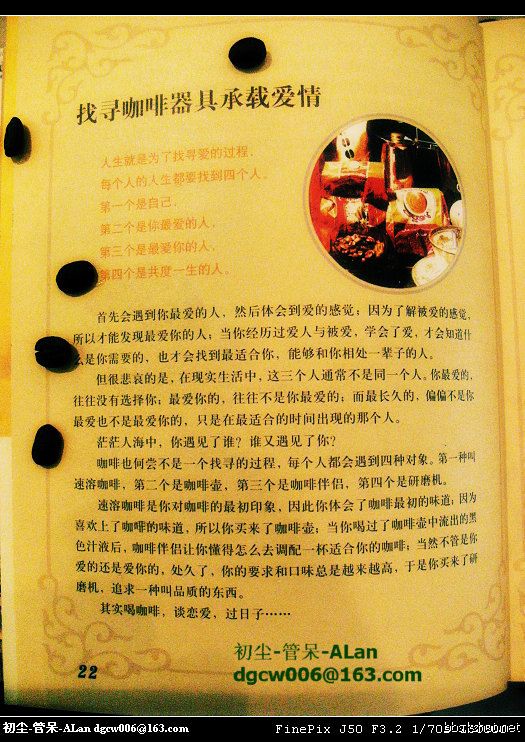 找寻咖啡器具承载爱情
人生就是为了找寻爱的过程，
每个人的人生都要找到四个人。
第一个是自己，
第二个是你最爱的人，
第三个是最爱你的人，
第四个是共度一生的人。
首先会遇到你最爱的人，然后体会到爱的感觉；因为了解被爱的感觉，
所以才能发现最爱你的人；当你经历过爱人与被爱，学会了爱，才会知道什
么是你需要的，也才会找到最适合你，能够和你相处一辈子的人。
但很悲哀的是，在现实生活中，这三个人通常不是同一个人。你最爱的，
往往没有选择你；最爱你的，往往不是你最爱的；而最长久的，偏偏不是你
最爱也不是最爱你的，只是在最适合的时间出现的那个人。
茫茫人海中，你遇见了谁？谁又遇见了你？
咖啡也何尝不是一个找寻的过程，每个人都会遇到四种对象。第一种叫
速溶咖啡，第二个是咖啡壶，第三个是咖啡伴侣，第四个是研磨机。
速溶咖啡是你对咖啡的最初印象，因此你体会了咖啡最初的味道；因为
喜欢上了咖啡的味道，所以你买来了咖啡壶；当你喝过了咖啡壶中流出的黑
色汁液后，咖啡伴侣让你懂得怎么去调配一杯适合你的咖啡；当然不管是你
爱的还是爱你的，处久了，你的要求和口味总是越来越高，于是你买来了研
磨机，追求一种叫品质的东西。
其实喝咖啡，谈恋爱，过日子……
22
初尘-管呆-ALan
dgcw006@163.com
初尘-管呆-ALan dgcw006@163.com
FinePix J50 F3.2